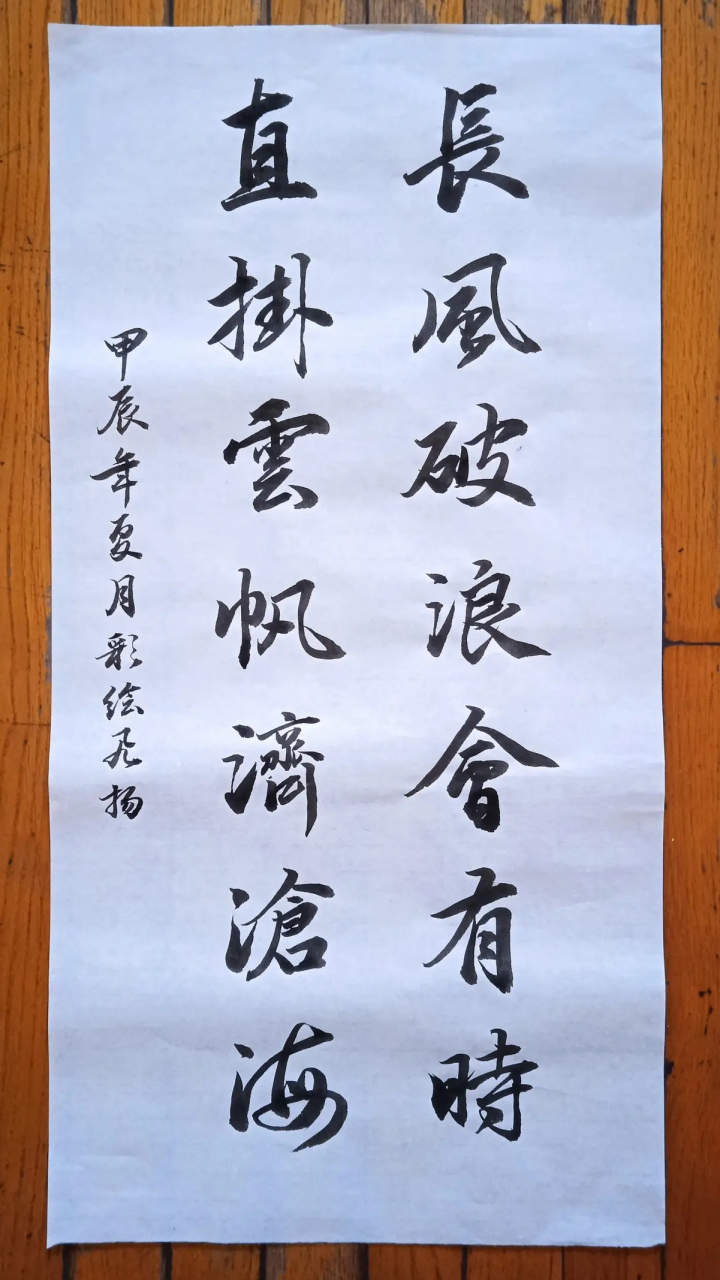 長風破浪會有時
直掛雲帆濟滄海
甲辰年夏月彩绘飛扬